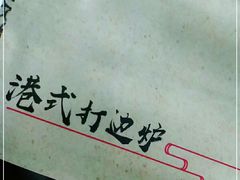 港式打边炉